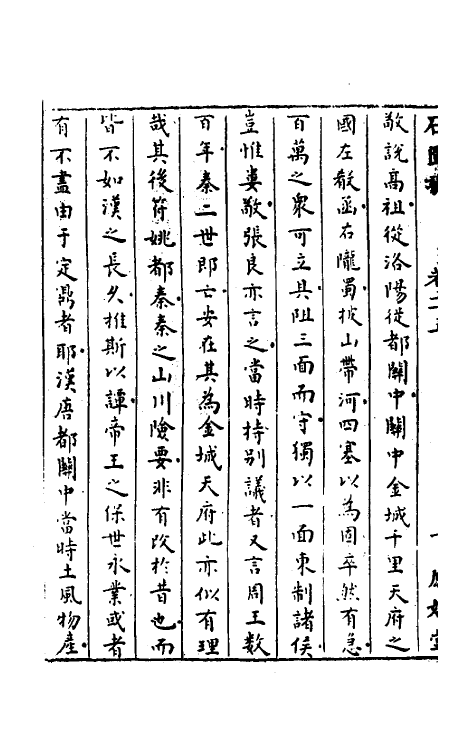 石匱書 卷二五 鳳嬉堂
敬說高祖從洛陽徙都關中關中金城千里天府之
國左殽函右隴蜀披山帶河四塞以為固卒然有急
百萬之衆可立具阻三面而守獨以一面東制諸侯
豈惟婁敬張良亦言之當時持别議者又言周王數
百年秦二世即亡安在其為金城天府此亦似有理
哉其後苻姚都秦秦之山川險要非有改於昔也而
皆不如漢之長久推斯以譚帝王之保世永業或者
有不盡由于定鼎者耶漢唐都關中當時土風物產